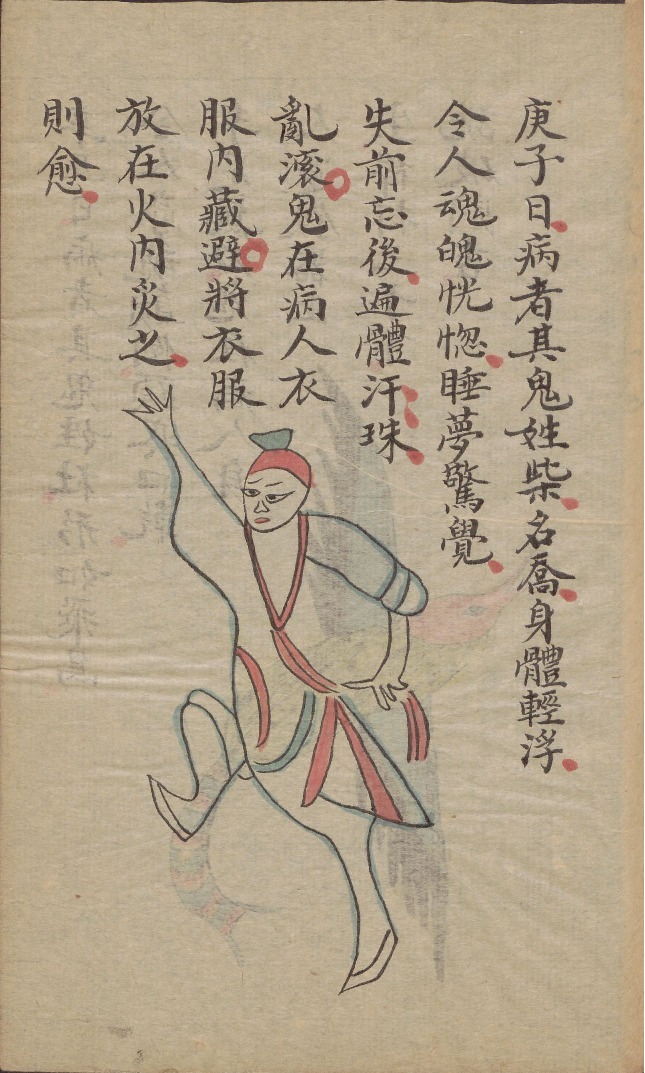 庚子日病者其鬼姓柴名喬身體輕浮
令人魂魄恍惚睡夢驚覺
失前忘後遍體汗珠
亂滚鬼在病人衣
服内藏避將衣服
放在火内炙之
則愈